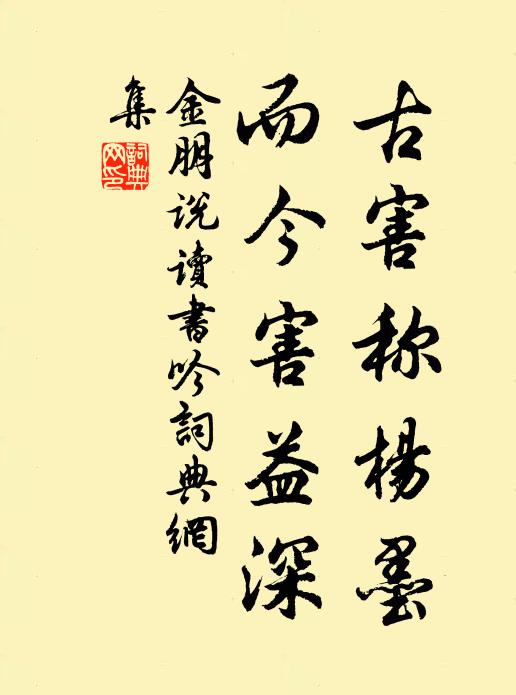 古害称楊墨
而今害益深
金朋说读書吟詞典網
集
詞典
网印